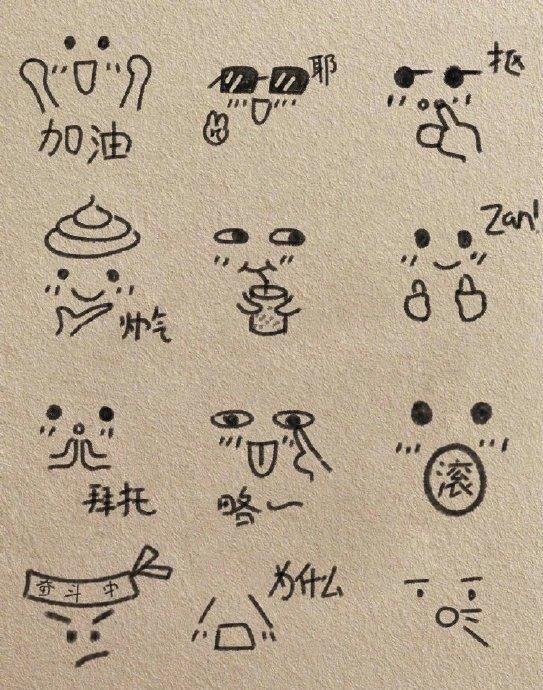 加油
耶
抠
帅气
Zan!
拜托
略~
滚
奋斗中
为什么